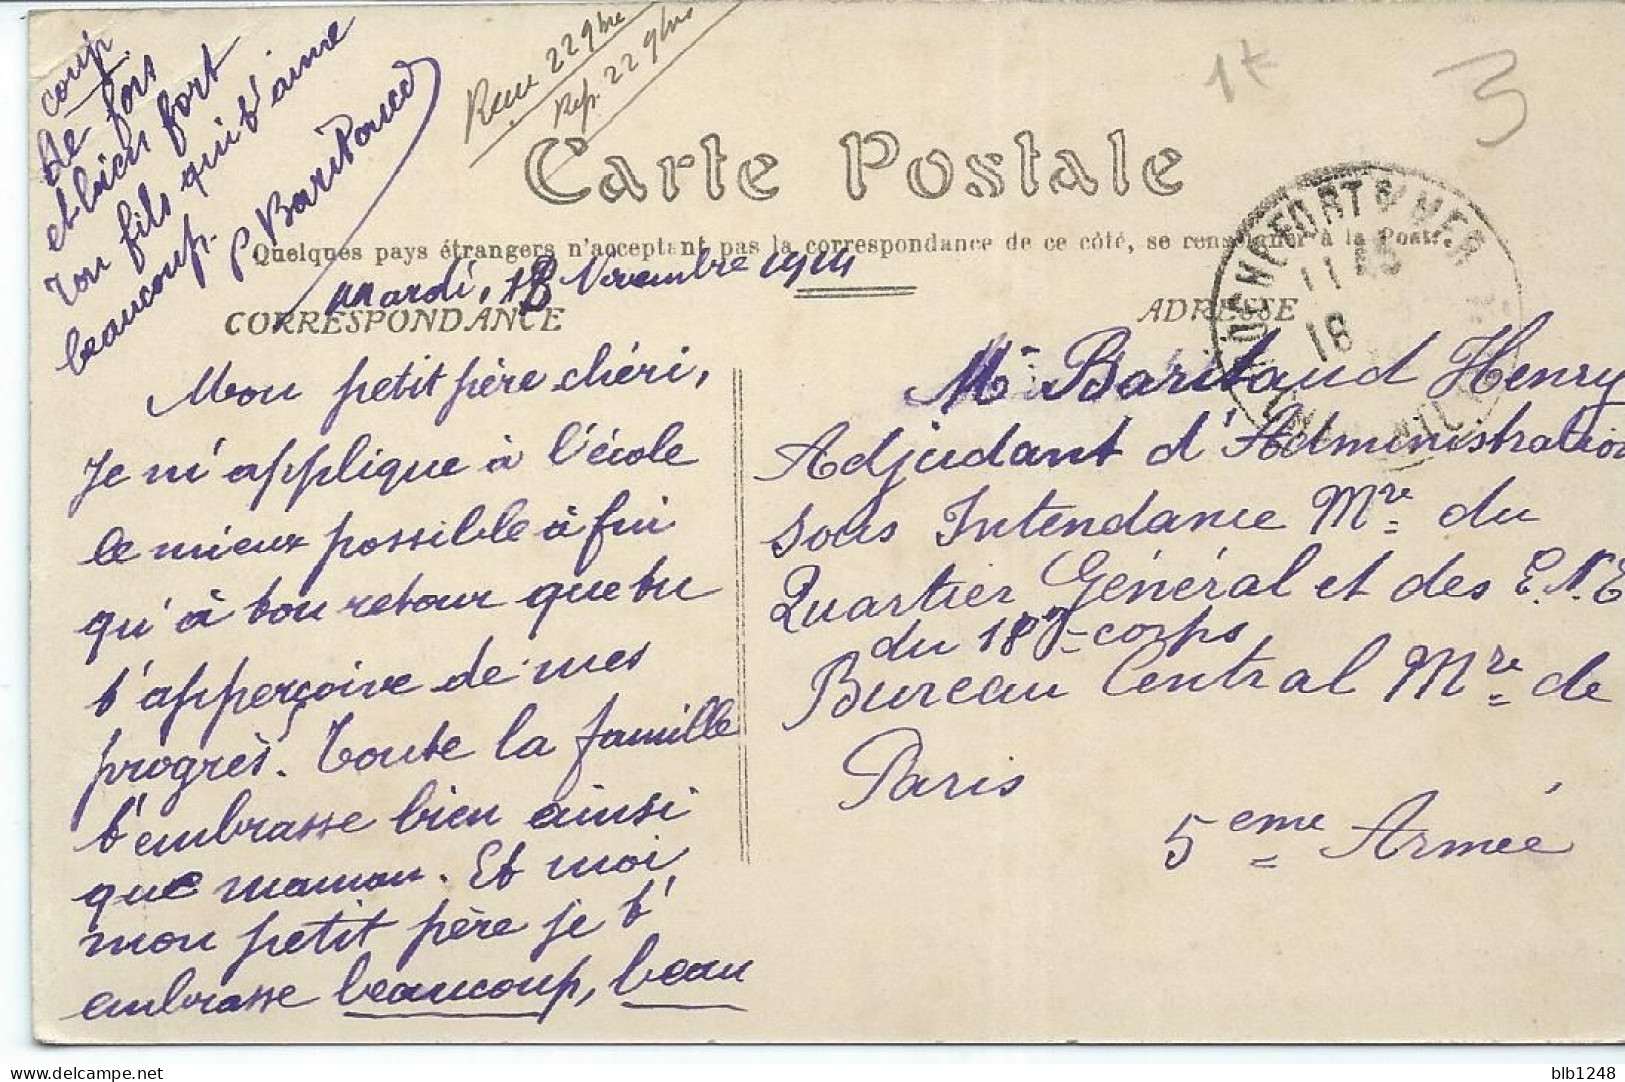 Recu 22 9bre
Rep. 22 9bre
1t
3
Carte Postale
Quelques pays étrangers n'acceptant pas la correspondance de ce côté, se renseigner à la Poste.
mardi, 18 Novembre 1914
CORRESPONDANCE
Mon petit père chéri,
Je m'applique à l'école
le mieux possible à fin
qu'à ton retour que tu
t'apperçoive de mes
progrès. Toute la famille
t'embrasse bien ainsi
que maman. Et moi
mon petit père je t'
embrasse beaucoup, beau
coup
de fois
et bien fort
Ton fils qui t'aime
beaucoup.
P Baritaud
ADRESSE
Mr Baritaud Henry
Adjudant d'Administration
Sous Intendance Mre du
Quartier Général et des E.N.E
du 18e corps
Bureau Central Mre de
Paris
5eme Armée
DOMFORT S/ MER
11 45
18
blb1248